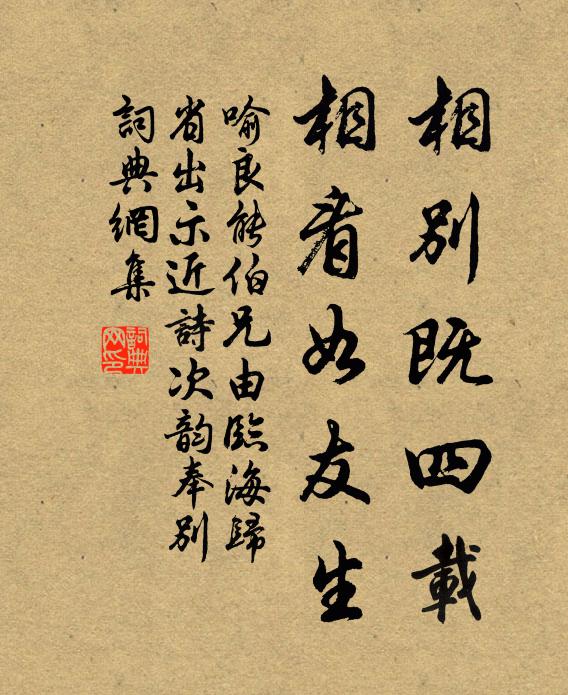 相別既四載
相看如友生
喻良能伯兄由臨海歸
省出示近詩次韵奉別
詞典網集
詞典网印